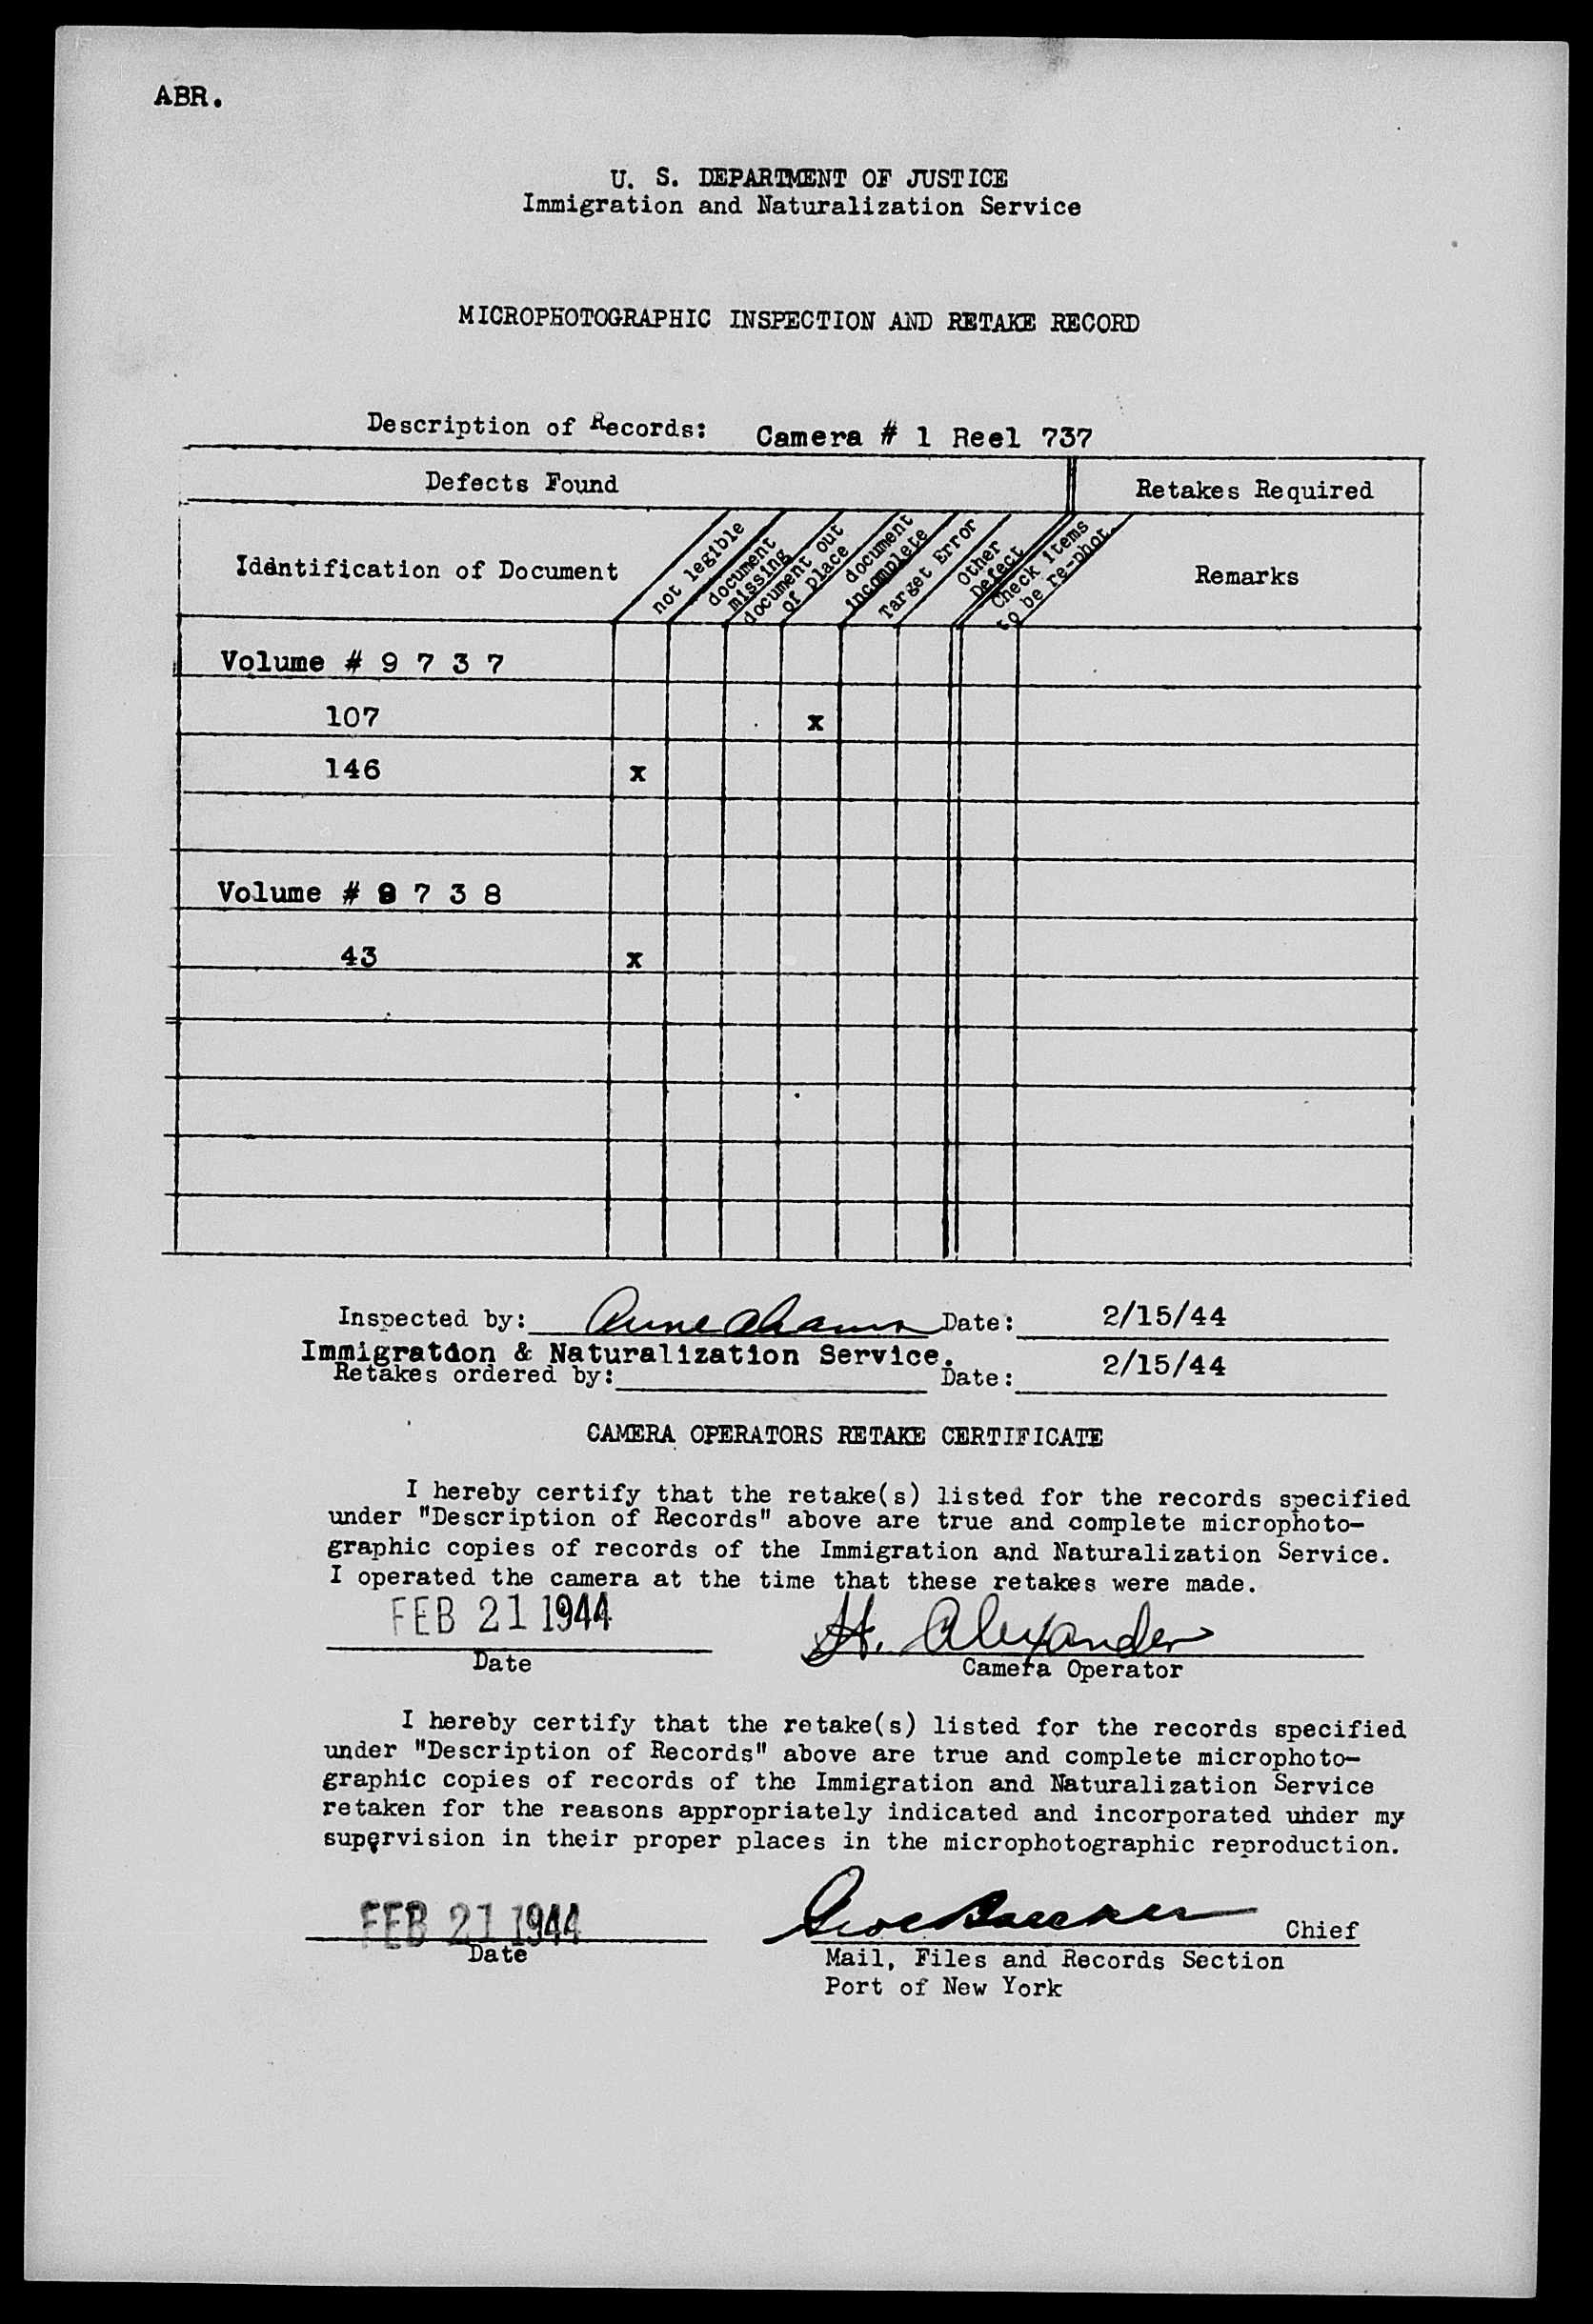 ABR.
U. S. DEPARTMENT OF JUSTICE
Immigration and Naturalization Service
MICROPHOTOGRAPHIC INSPECTION AND RETAKE RECORD
Description of Records: Camera # 1 Reel 737
Defects Found
Retakes Required
Identification of Document
not legible
document missing
document out of place
document incomplete
Target Error
Other Defect
Check items to be re-phot.
Remarks
Volume # 9 7 3 7
107 x
146 x
Volume # 9 7 3 8
43 x
Inspected by: Date: 2/15/44
Immigration & Naturalization Service.
Retakes ordered by: Date: 2/15/44
CAMERA OPERATORS RETAKE CERTIFICATE
I hereby certify that the retake(s) listed for the records specified
under "Description of Records" above are true and complete microphoto-
graphic copies of records of the Immigration and Naturalization Service.
I operated the camera at the time that these retakes were made.
FEB 21 1944 H. Alexander
Date Camera Operator
I hereby certify that the retake(s) listed for the records specified
under "Description of Records" above are true and complete microphoto-
graphic copies of records of the Immigration and Naturalization Service
retaken for the reasons appropriately indicated and incorporated under my
supervision in their proper places in the microphotographic reproduction.
FEB 21 1944 Chief
Date Mail, Files and Records Section
Port of New York